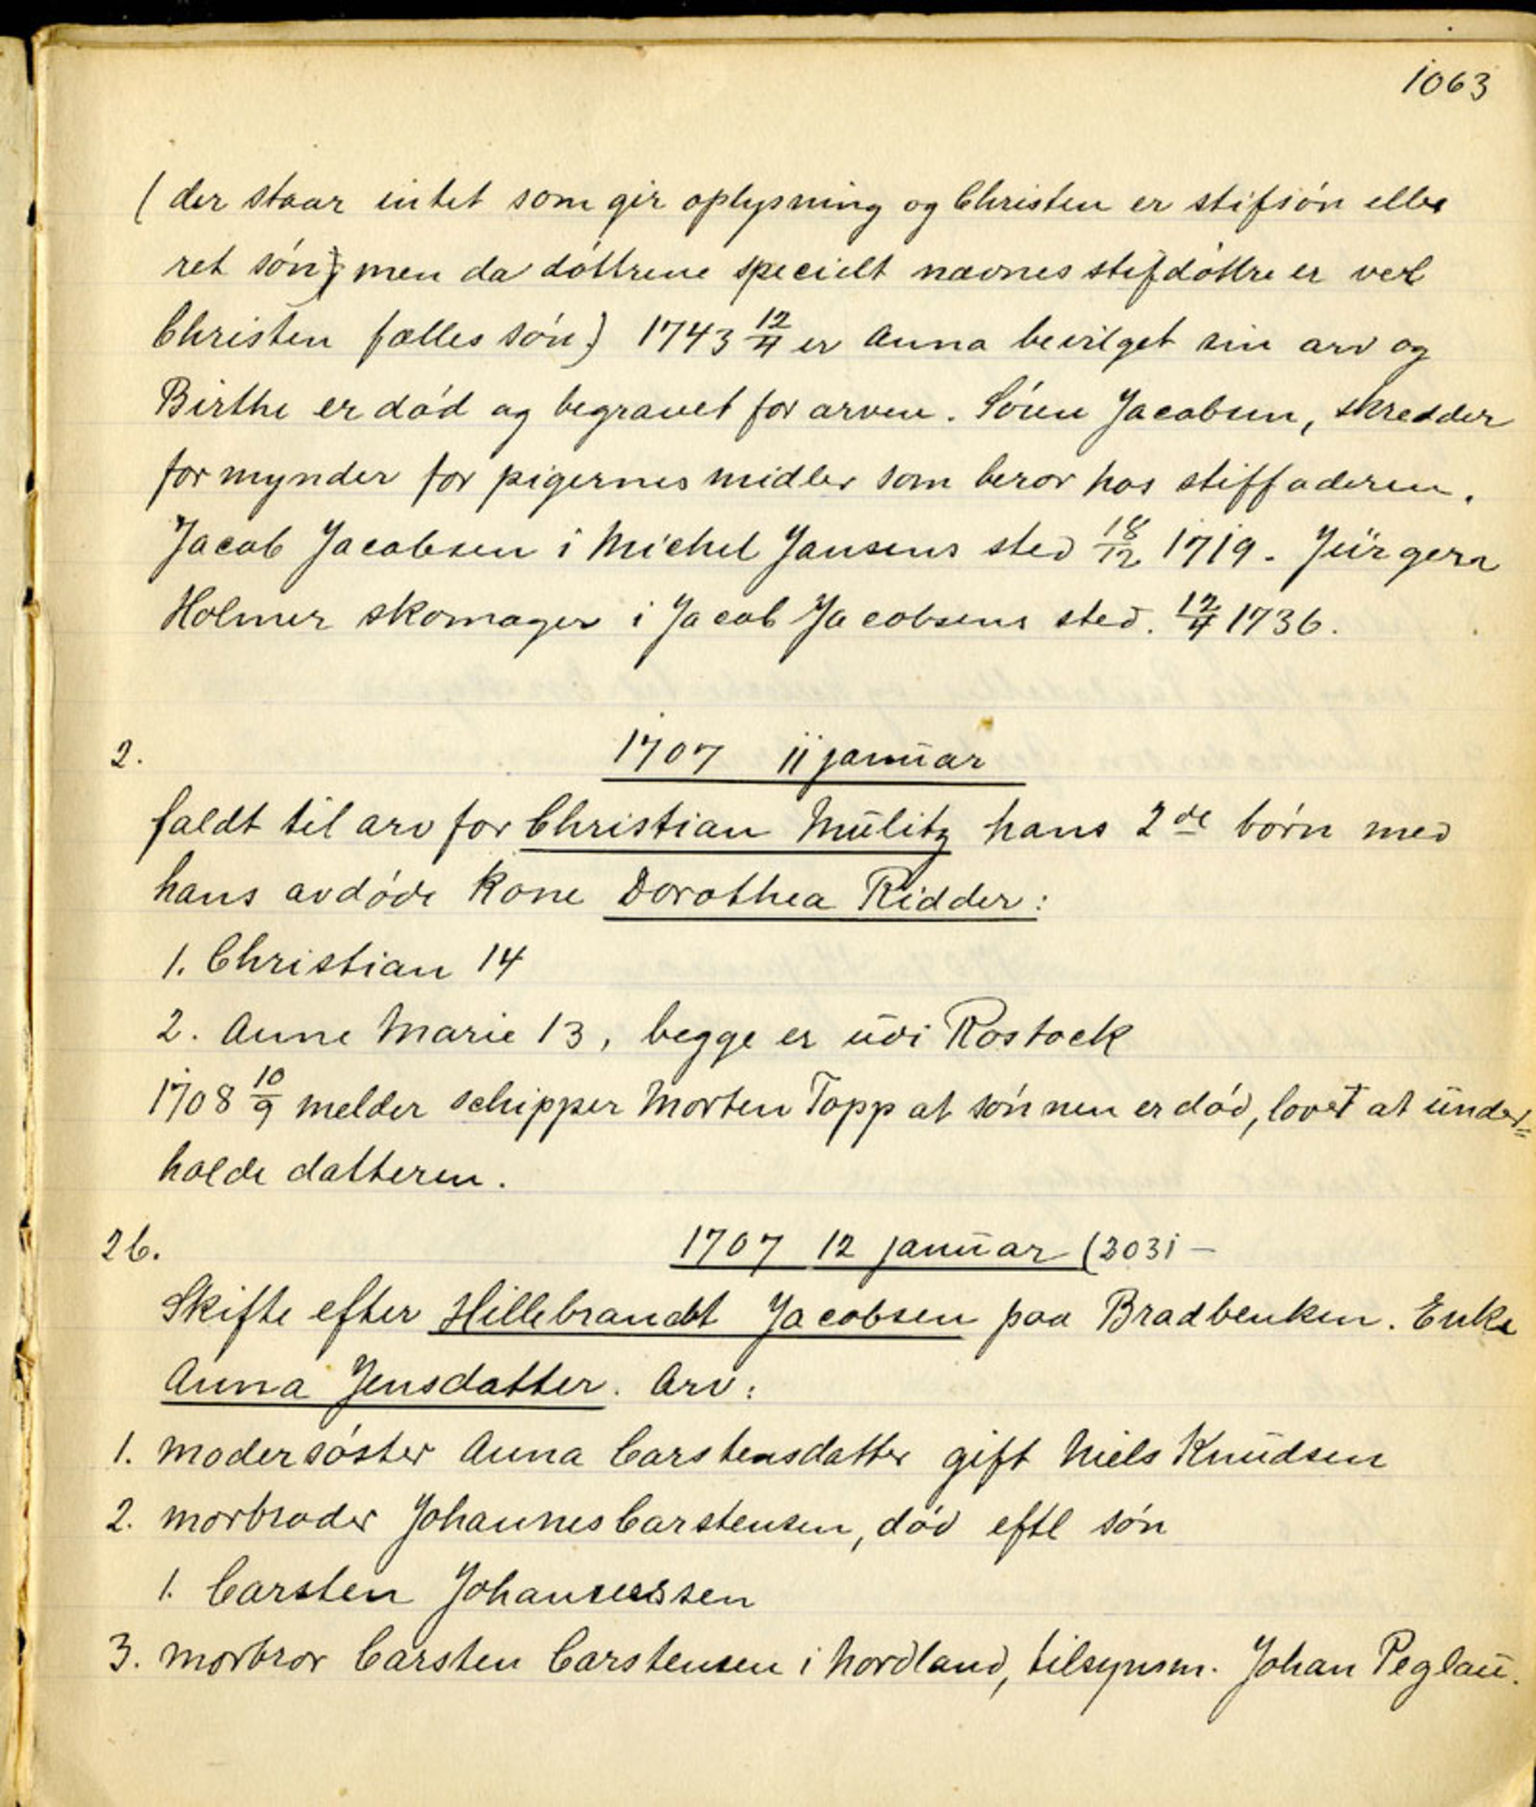 1063
( der staar intet som gir oplysning og Christen er stifsón eller
ret són; men da dóttrene specielt nævnes stifdóttre er vel
Christen fælles són) 1743 12/4 er Anna bevilget sin arv og
Birthe er dód og begravet for arven. Sóren Jacobsen, skredder
formynder for pigernes midler som beror hos stiffaderen.
Jacob Jacobsen i Michel Jansens sted 18/12 1719. Jürgen
Holmer skomager i Jacob Jacobsens sted. 12/4 1736.
2. 1707 11 januar
faldt til arv for Christian Mülitz hans 2de bórn med
hans avdóde kone Dorothea Ridder:
1. Christian 14
2. Anne Marie 13, begge er udi Rostock
1708 10/9 melder schipper Morten Topp at sónnen er dód, lovet at ünder=
holde datteren.
26. 1707 12 januar (203) –
Skifte efter Hillebrandt Jacobsen paa Bradbenken. Enke
Anna Jensdatter. Arv:
1. modersóster Anna Carstensdatter gift Niels Knudsen
2. morbroder Johannes Carstensen, dód eftl són
1. Carsten Johannessen
3. morbror Carsten Carstensen i Nordland, tilsynsm. Johan Peglaü.